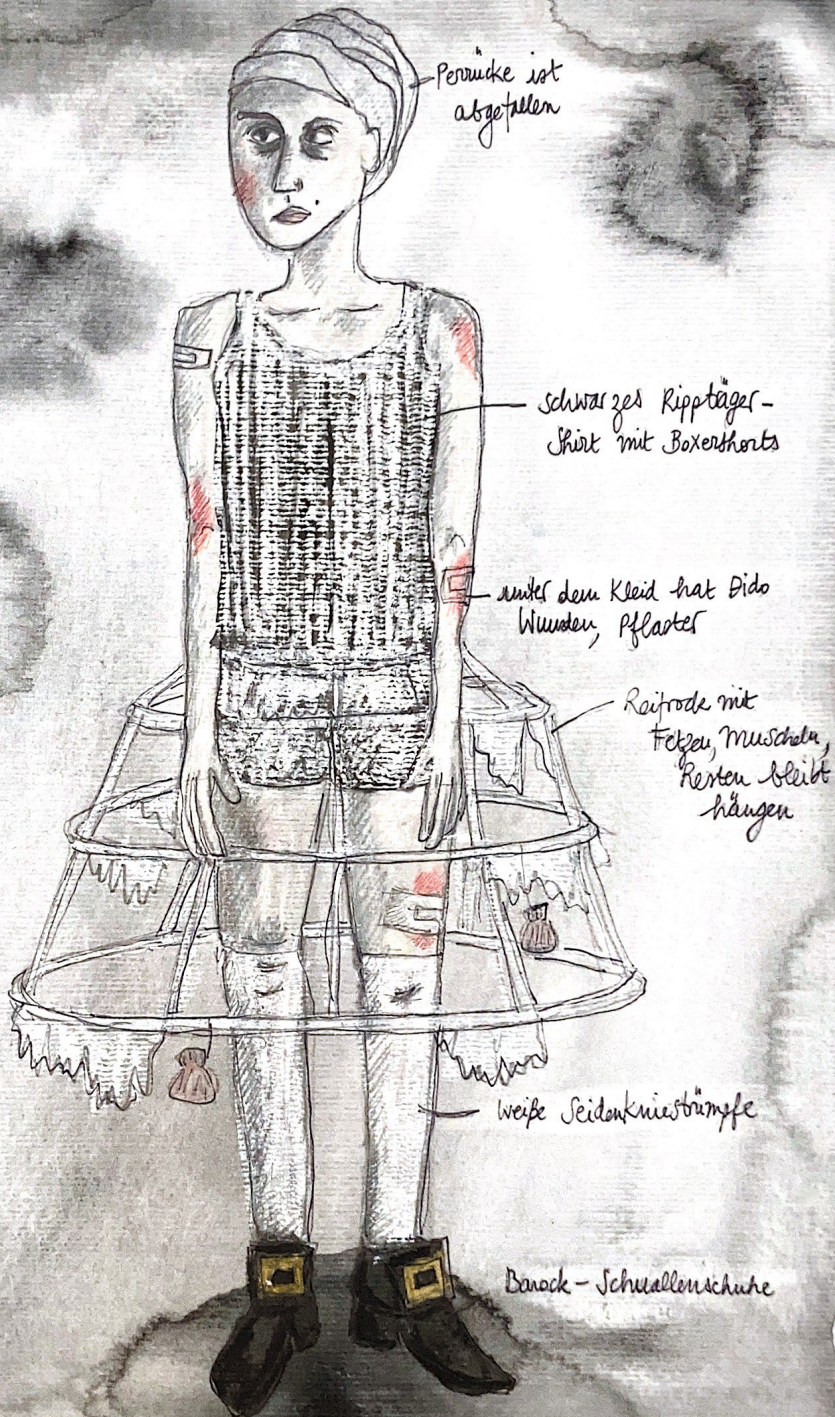 Perrücke ist
abgefallen
schwarzes Rippträger-
Shirt mit Boxershorts
unter dem Kleid hat Dido
Wunden, Pflaster
Reifrock mit
Fetzen, Muscheln,
Resten bleibt
hängen
weiße Seidenkniestrümpfe
Barock - Schnallenschuhe